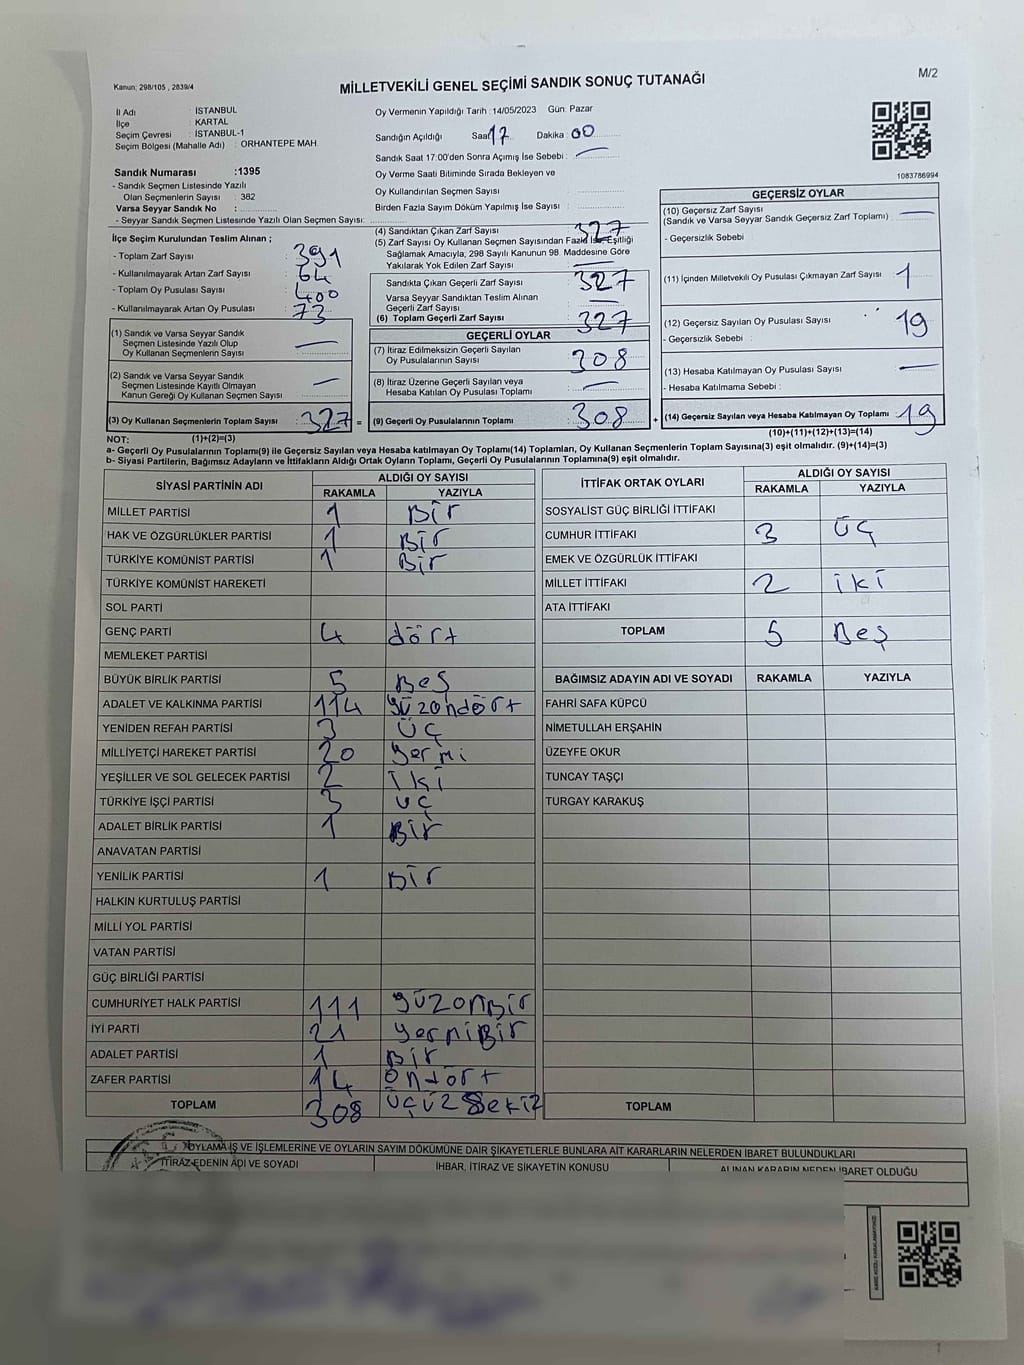 Kanun; 298/105 , 2839/4
MİLLETVEKİLİ GENEL SEÇİMİ SANDIK SONUÇ TUTANAĞI
M/2
İl Adı : İSTANBUL
İlçe : KARTAL
Seçim Çevresi : İSTANBUL-1
Seçim Bölgesi (Mahalle Adı) : ORHANTEPE MAH.
Sandık Numarası :1395
- Sandık Seçmen Listesinde Yazılı
Olan Seçmenlerin Sayısı : 382
Varsa Seyyar Sandık No :
- Seyyar Sandık Seçmen Listesinde Yazılı Olan Seçmen Sayısı:
Oy Vermenin Yapıldığı Tarih : 14/05/2023 Gün: Pazar
Sandığın Açıldığı Saat 17 Dakika : 00
Sandık Saat 17:00'den Sonra Açımış İse Sebebi : —
Oy Verme Saati Bitiminde Sırada Bekleyen ve
Oy Kullandırılan Seçmen Sayısı :
Birden Fazla Sayım Döküm Yapılmış İse Sayısı :
1083786994
İlçe Seçim Kurulundan Teslim Alınan ;
- Toplam Zarf Sayısı : 391
- Kullanılmayarak Artan Zarf Sayısı : 64
- Toplam Oy Pusulası Sayısı : 400
- Kullanılmayarak Artan Oy Pusulası : 73
(1) Sandık ve Varsa Seyyar Sandık
Seçmen Listesinde Yazılı Olup
Oy Kullanan Seçmenlerin Sayısı : —
(2) Sandık ve Varsa Seyyar Sandık
Seçmen Listesinde Kayıtlı Olmayan
Kanun Gereği Oy Kullanan Seçmen Sayısı : —
(3) Oy Kullanan Seçmenlerin Toplam Sayısı : 327 =
(4) Sandıktan Çıkan Zarf Sayısı : 327
(5) Zarf Sayısı Oy Kullanan Seçmen Sayısından Fazla İse, Eşitliği
Sağlamak Amacıyla; 298 Sayılı Kanunun 98. Maddesine Göre
Yakılarak Yok Edilen Zarf Sayısı : —
Sandıkta Çıkan Geçerli Zarf Sayısı : 327
Varsa Seyyar Sandıktan Teslim Alınan
Geçerli Zarf Sayısı : —
(6) Toplam Geçerli Zarf Sayısı : 327
GEÇERLİ OYLAR
(7) İtiraz Edilmeksizin Geçerli Sayılan
Oy Pusulalarının Sayısı : 308
(8) İtiraz Üzerine Geçerli Sayılan veya
Hesaba Katılan Oy Pusulası Toplamı : —
(9) Geçerli Oy Pusulalarının Toplamı : 308 +
GEÇERSİZ OYLAR
(10) Geçersiz Zarf Sayısı
(Sandık ve Varsa Seyyar Sandık Geçersiz Zarf Toplamı) : —
- Geçersizlik Sebebi :
(11) İçinden Milletvekili Oy Pusulası Çıkmayan Zarf Sayısı : 1
(12) Geçersiz Sayılan Oy Pusulası Sayısı : 19
- Geçersizlik Sebebi :
(13) Hesaba Katılmayan Oy Pusulası Sayısı : —
- Hesaba Katılmama Sebebi :
(14) Geçersiz Sayılan veya Hesaba Katılmayan Oy Toplamı : 19
NOT: (1)+(2)=(3) (10)+(11)+(12)+(13)=(14)
a- Geçerli Oy Pusulaları Toplamı(9) ile Geçersiz Sayılan veya Hesaba katılmayan Oy Toplamı(14) Toplamları, Oy Kullanan Seçmenlerin Toplam Sayısına(3) eşit olmalıdır. (9)+(14)=(3)
b- Siyasi Partilerin, Bağımsız Adayların ve İttifakların Aldığı Ortak Oyların Toplamı, Geçerli Oy Pusulalarının Toplamına(9) eşit olmalıdır.
SİYASİ PARTİNİN ADI ALDIĞI OY SAYISI
RAKAMLA YAZIYLA
MİLLET PARTİSİ 1 Bir
HAK VE ÖZGÜRLÜKLER PARTİSİ 1 Bir
TÜRKİYE KOMÜNİST PARTİSİ 1 Bir
TÜRKİYE KOMÜNİST HAREKETİ
SOL PARTİ
GENÇ PARTİ 4 dört
MEMLEKET PARTİSİ
BÜYÜK BİRLİK PARTİSİ 5 Beş
ADALET VE KALKINMA PARTİSİ 114 yüzondört
YENİDEN REFAH PARTİSİ 3 üç
MİLLİYETÇİ HAREKET PARTİSİ 20 yermi
YEŞİLLER VE SOL GELECEK PARTİSİ 2 iki
TÜRKİYE İŞÇİ PARTİSİ 3 üç
ADALET BİRLİK PARTİSİ 1 Bir
ANAVATAN PARTİSİ
YENİLİK PARTİSİ 1 Bir
HALKIN KURTULUŞ PARTİSİ
MİLLİ YOL PARTİSİ
VATAN PARTİSİ
GÜÇ BİRLİĞİ PARTİSİ
CUMHURİYET HALK PARTİSİ 111 yüzonBir
İYİ PARTİ 21 yermiBir
ADALET PARTİSİ 1 Bir
ZAFER PARTİSİ 14 öndört
TOPLAM 308 üçüz Sekiz
İTTİFAK ORTAK OYLARI ALDIĞI OY SAYISI
RAKAMLA YAZIYLA
SOSYALİST GÜÇ BİRLİĞİ İTTİFAKI
CUMHUR İTTİFAKI 3 üç
EMEK VE ÖZGÜRLÜK İTTİFAKI
MİLLET İTTİFAKI 2 iki
ATA İTTİFAKI
TOPLAM 5 Beş
BAĞIMSIZ ADAYIN ADI VE SOYADI RAKAMLA YAZIYLA
FAHRİ SAFA KÜPCÜ
NİMETULLAH ERŞAHİN
ÜZEYFE OKUR
TUNCAY TAŞÇI
TURGAY KARAKUŞ
TOPLAM
OYLAMA İŞ VE İŞLEMLERİNE VE OYLARIN SAYIM DÖKÜMÜNE DAİR ŞİKAYETLERLE BUNLARA AİT KARARLARIN NELERDEN İBARET BULUNDUKLARI
İTİRAZ EDENİN ADI VE SOYADI İHBAR, İTİRAZ VE ŞİKAYETİN KONUSU ALINAN KARARIN NEDEN İBARET OLDUĞU